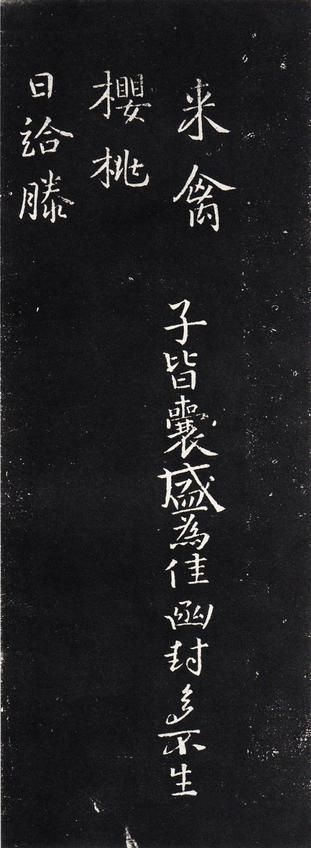 来禽
櫻桃
日給滕
子皆囊盛為佳函封多不生